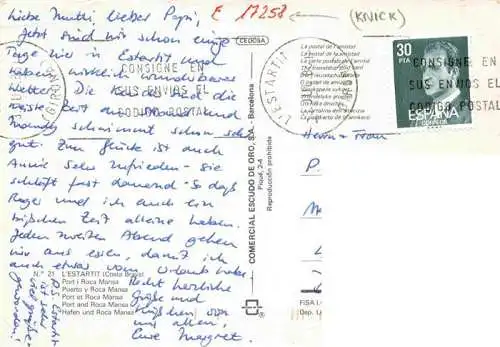 Liebe Mutti, lieber Papi,
Jetzt sind wir schon einige
Tage hier in Estartit und
haben wirklich wunderbares
Wetter. Die sind die
meiste Zeit am Strand und
schwimmt schon sehr
gut. Zum Glück ist auch
Annie sehr zufrieden - sie
schläft fast dauernd - so daß
Roger und ich auch ein
bißchen Zeit alleine haben.
Jeden zweiten Abend gehen
wir aus essen, damit ich
auch etwas vom Urlaub habe.
Recht herzliche
Grüße und
Küßchen von
uns allen,
Eure Margret.
P.S. Estartit
ist sehr
viel größer
geworden!
E 17258
(KNICK)
CEDOSA
CONSIGNE EN
SUS ENVIOS EL
CODIGO POSTAL
L'ESTARTIT
La postal de l'amistat
La postal de la amistad
30
PTA
ESPAÑA
CORREOS
CONSIGNE EN
SUS ENVIOS EL
CODIGO POSTAL
Herrn + Frau
P.
COMERCIAL ESCUDO DE ORO, S.A. - Barcelona
Reproducción prohibida
N.° 21 L'ESTARTIT (Costa Brava)
Port i Roca Mansa
Puerto y Roca Mansa
Port et Roca Mansa
Port and Roca Mansa
Hafen und Roca Mansa
FISA I.
Dep. L.